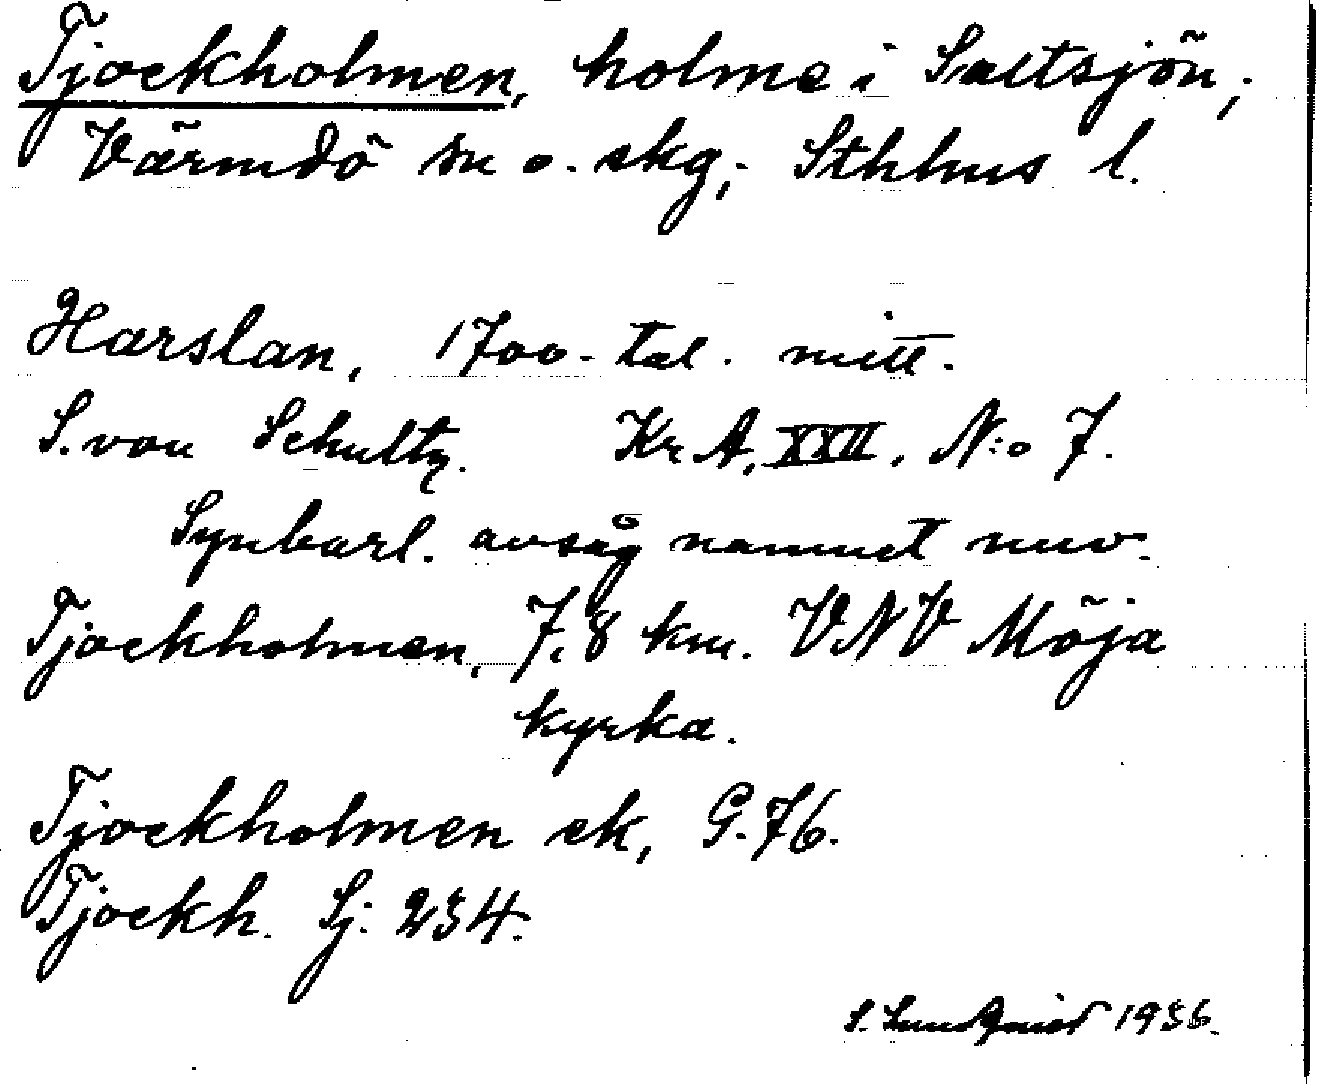 Tjockholmen, holme i Saltsjön;
Värmdö sn o. skg, Sthlms l.
Harslan, 1700-tal. mitt.
S. von Schultz. Kr A, XXII, N:o 7.
Synbarl. avsåg namnet nuv.
Tjockholmen, 7,8 km. VNV Möja
kyrka.
Tjockholmen ek, G. 76.
Tjockh. Sj: 234.
S. Lundqvist 1936.